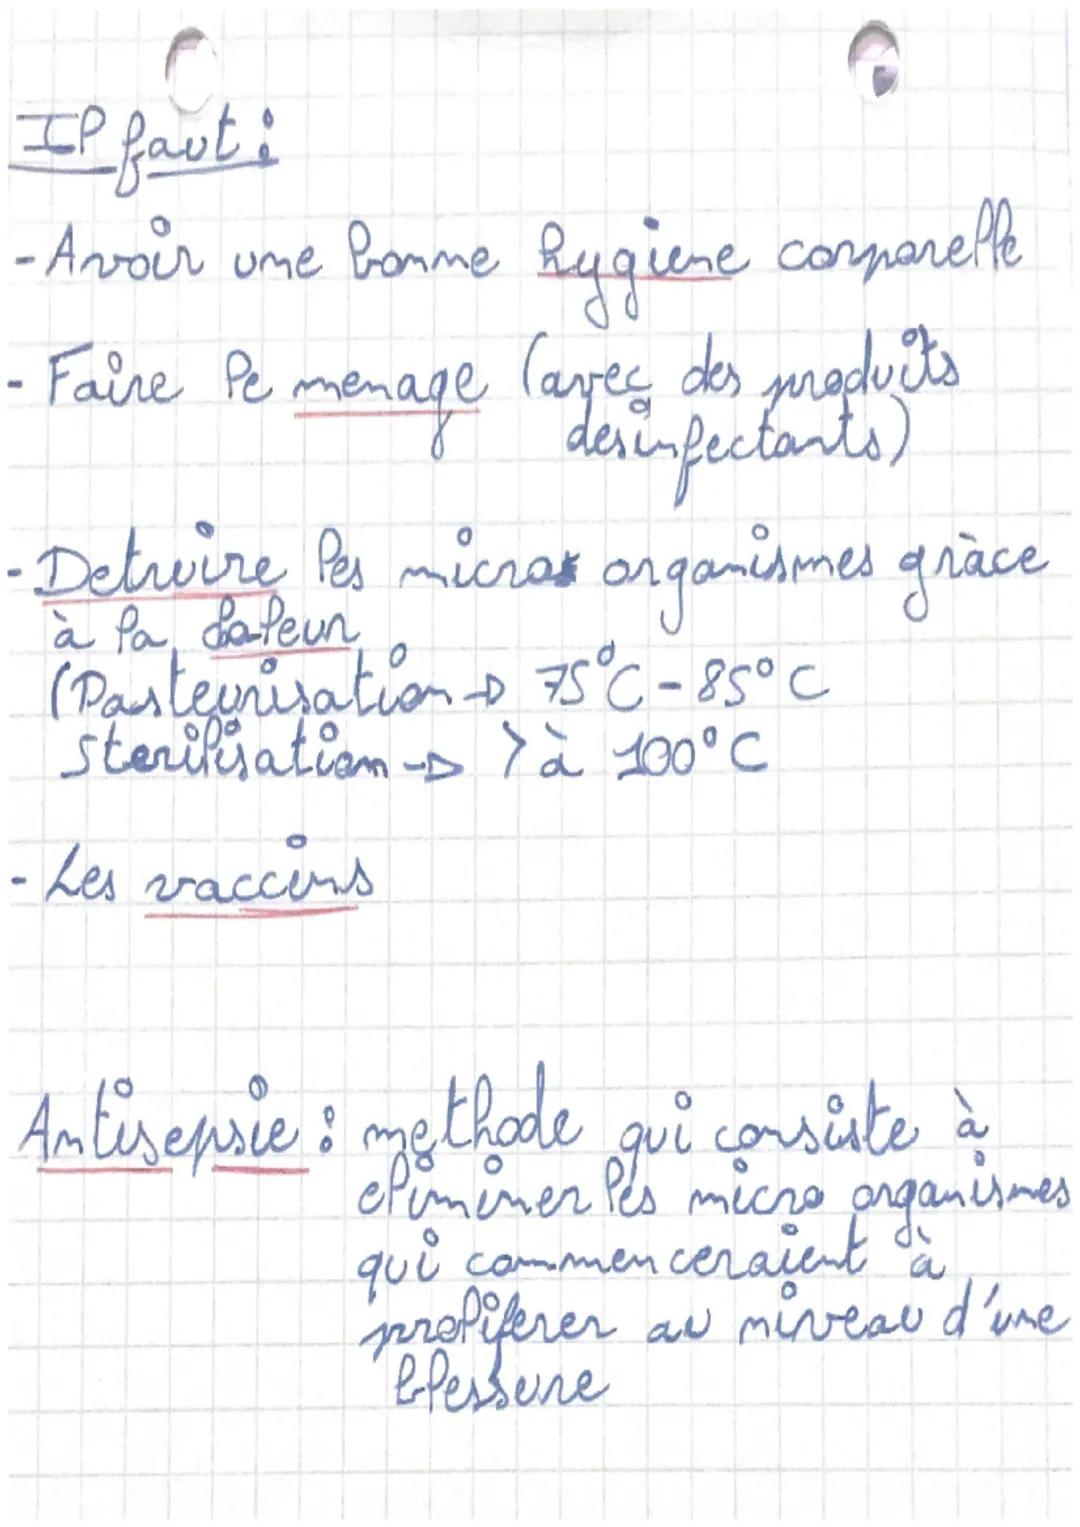 Il faut :
- Avoir une bonne hygiene corporelle
- Faire le menage (avec des produits
desinfectants)
- Detruire les micro organismes gràce
à la
(Pasteurisation → 75°C - 85°C
Sterilisation → > à 100°C
- Les vaccins
Antisepsie : methode qui consiste à
eliminer les micro organismes
qui commenceraient à
proliferer au niveau d'une
blessure